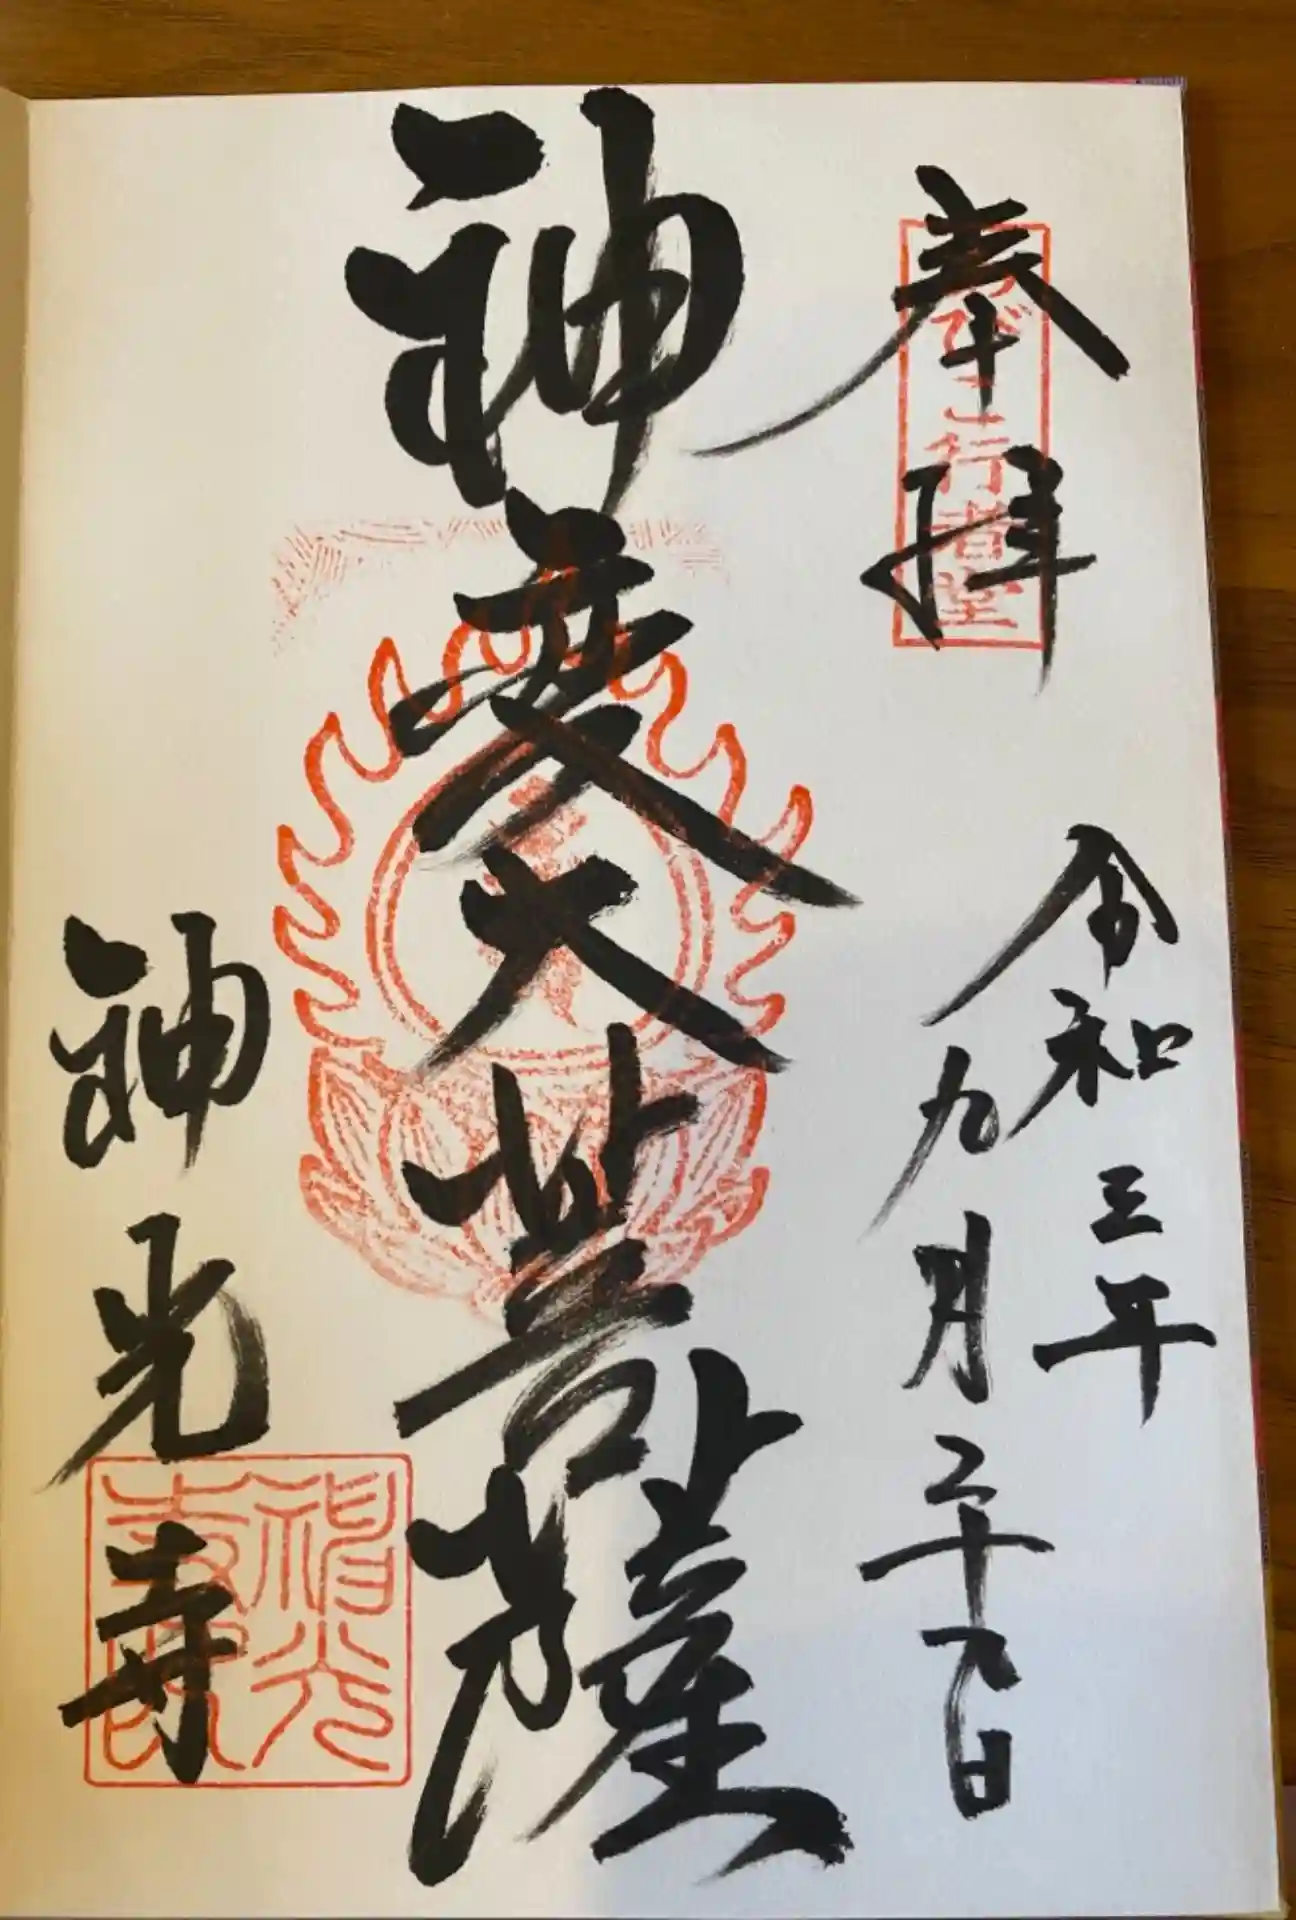 奉拝
行者堂
令和三年
九月二十日
神変大菩薩
神光寺
神光寺印